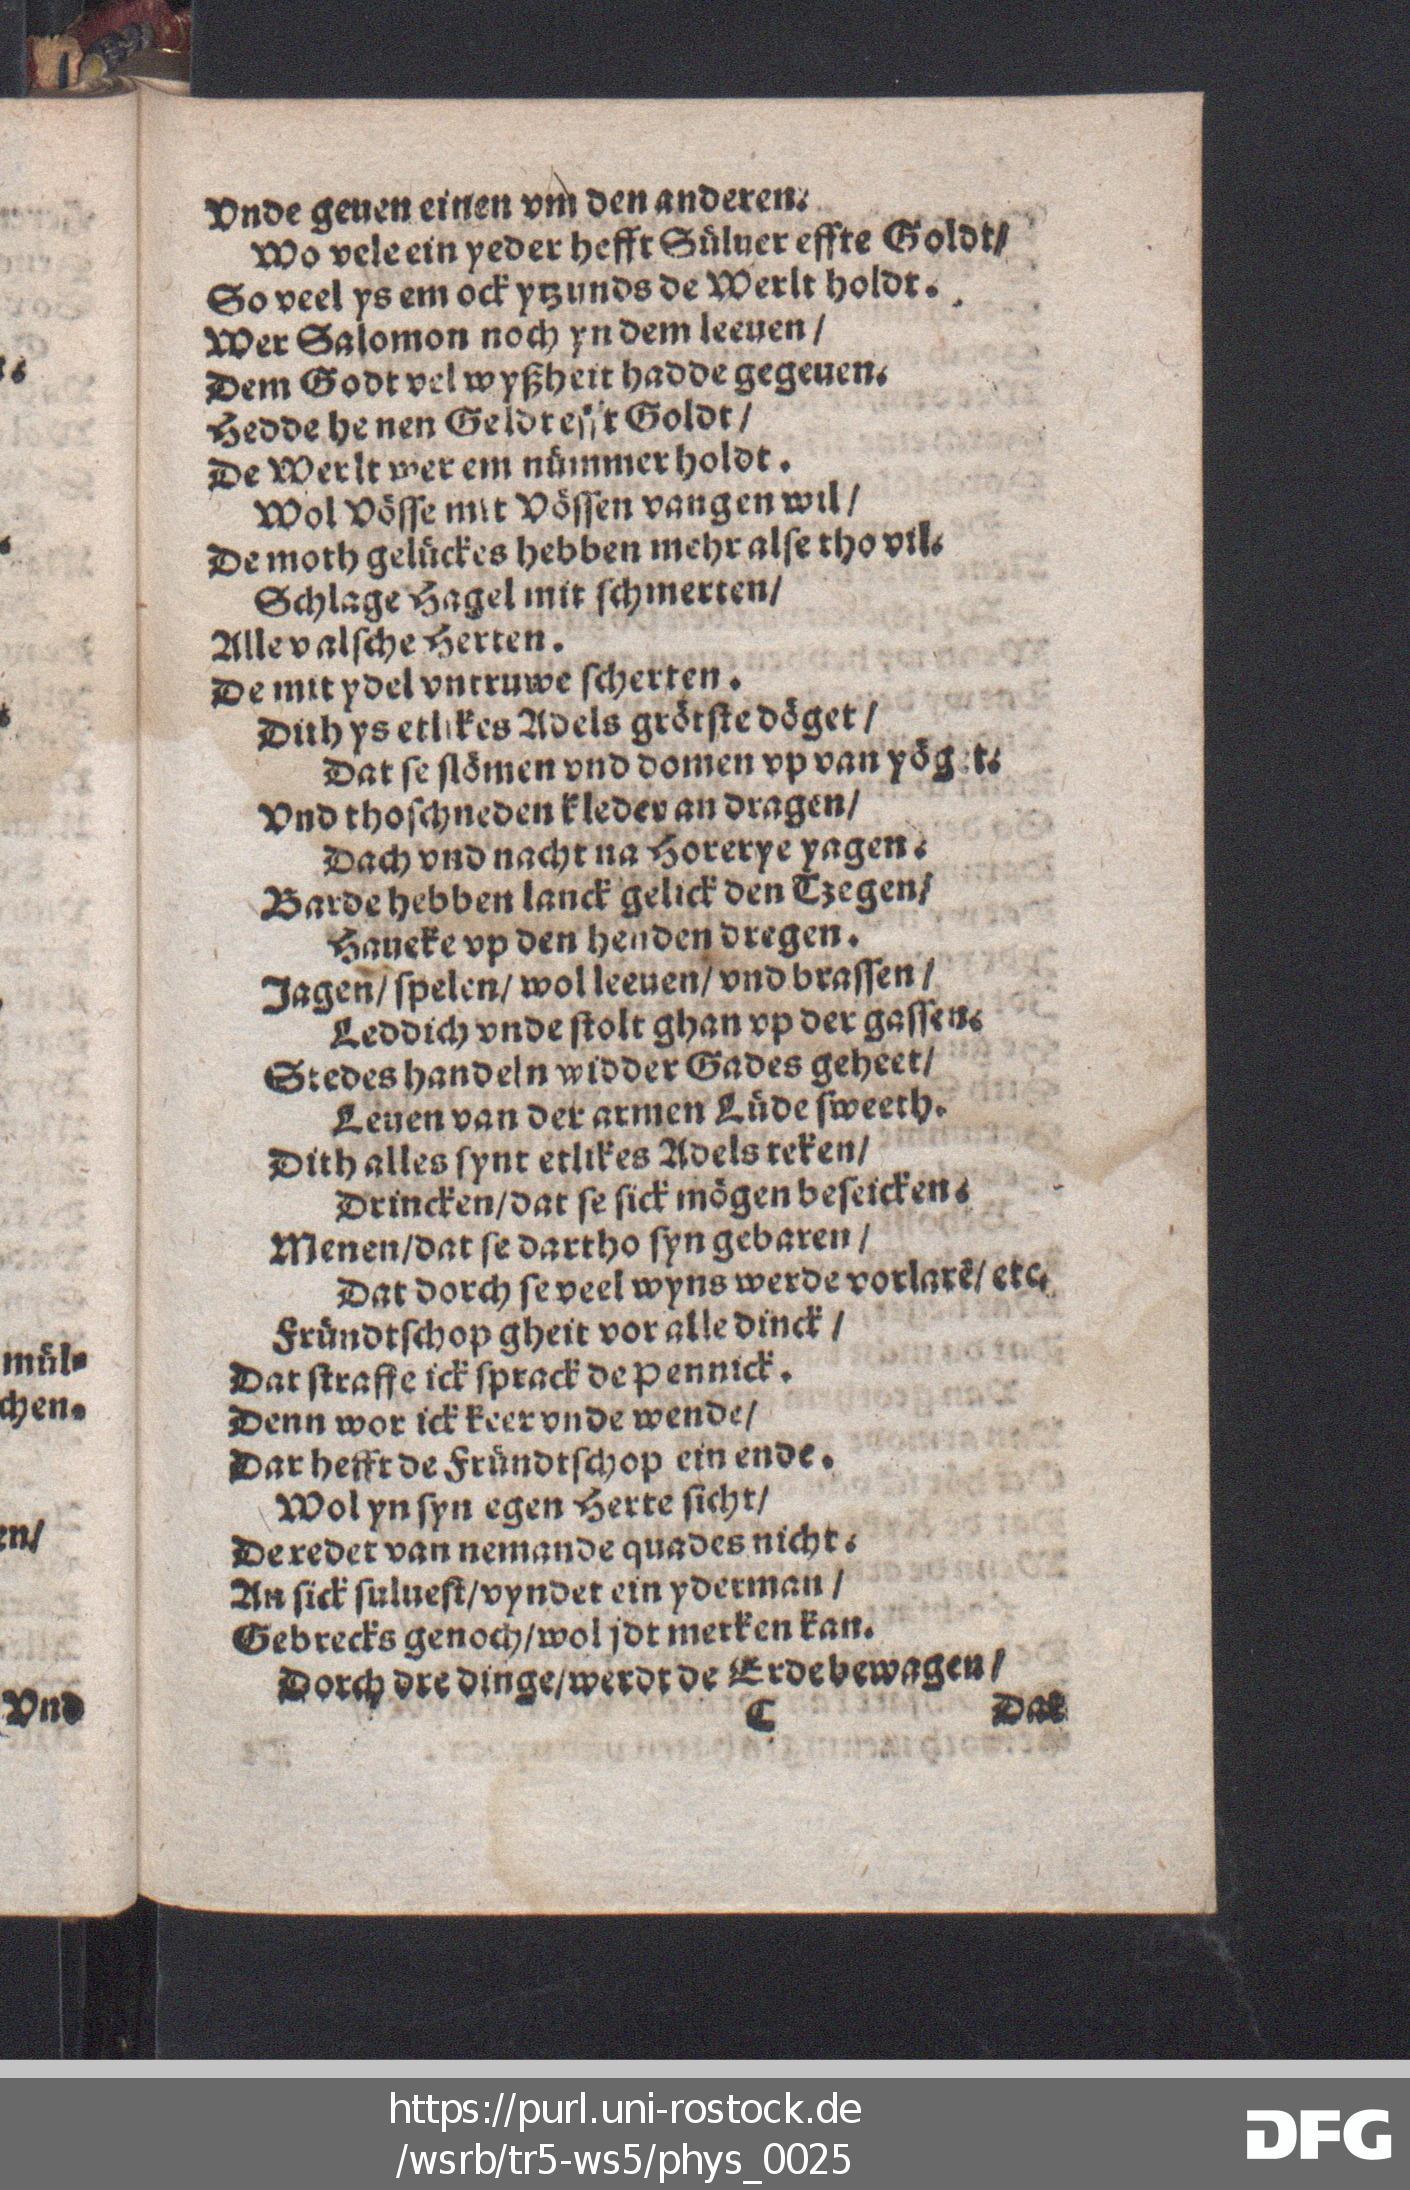 Vnde geuen einen vm den anderen.
Wo vele ein yeder hefft Sülver effte Goldt/
So veel ys em ock ytzunds de Werlt holdt.
Wer Salomon noch yn dem leeuen/
Dem Godt vel wyßheit hadde gegeuen.
Hedde he nen Geldt efft Goldt/
De Werlt wer em nümmer holdt.
Wol Vösse mit Vössen vangen wil/
De moth gelückes hebben mehr alse tho vil.
Schlage Hagel mit schmerten/
Alle valsche Herten.
De mit ydel vntruwe scherten.
Dith ys etlikes Adels grötste döget/
Dat se slömen vnd domen vp van yöget.
Vnd thoschneden kleder an dragen/
Dach vnd nacht na Horerye yagen.
Barde hebben lanck gelick den Tzegen/
Haueke vp den henden dregen.
Jagen/ spelen/ wol leeuen/ vnd brassen/
Leddich vnde stolt ghan vp der gassen.
Stedes handeln widder Gades geheet/
Leuen van der armen Lüde sweeth.
Dith alles synt etlikes Adels teken/
Drincken/ dat se sick mögen beseicken.
Menen/ dat se dartho syn gebaren/
Dat dorch se veel wyns werde vorlarē/ etc.
Fründtschop gheit vor alle dinck/
Dat straffe ick sprack de Pennick.
Denn wor ick keer vnde wende/
Dar hefft de Fründtschop ein ende.
Wol yn syn egen Herte sicht/
De redet van nemande quades nicht.
An sick suluest/ vyndet ein yderman/
Gebrecks genoch/ wol jdt merken kan.
Dorch dre dinge/ werdt de Erde bewagen/
C Dat
mül-
chen.
en/
Vnd
https://purl.uni-rostock.de
/wsrb/tr5-ws5/phys_0025
DFG